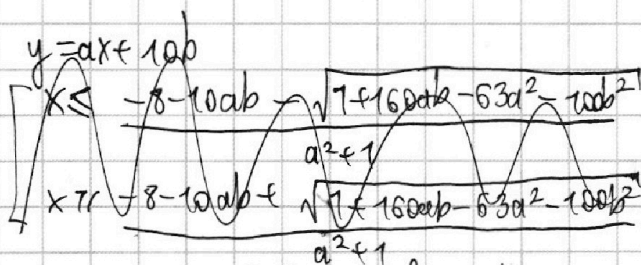 y = ax + 10b
x ≤ \frac{-8-10ab-\sqrt{1+160ab-63a^2-100b^2}}{a^2+1}
x ≥ \frac{-8-10ab+\sqrt{1+160ab-63a^2-100b^2}}{a^2+1}